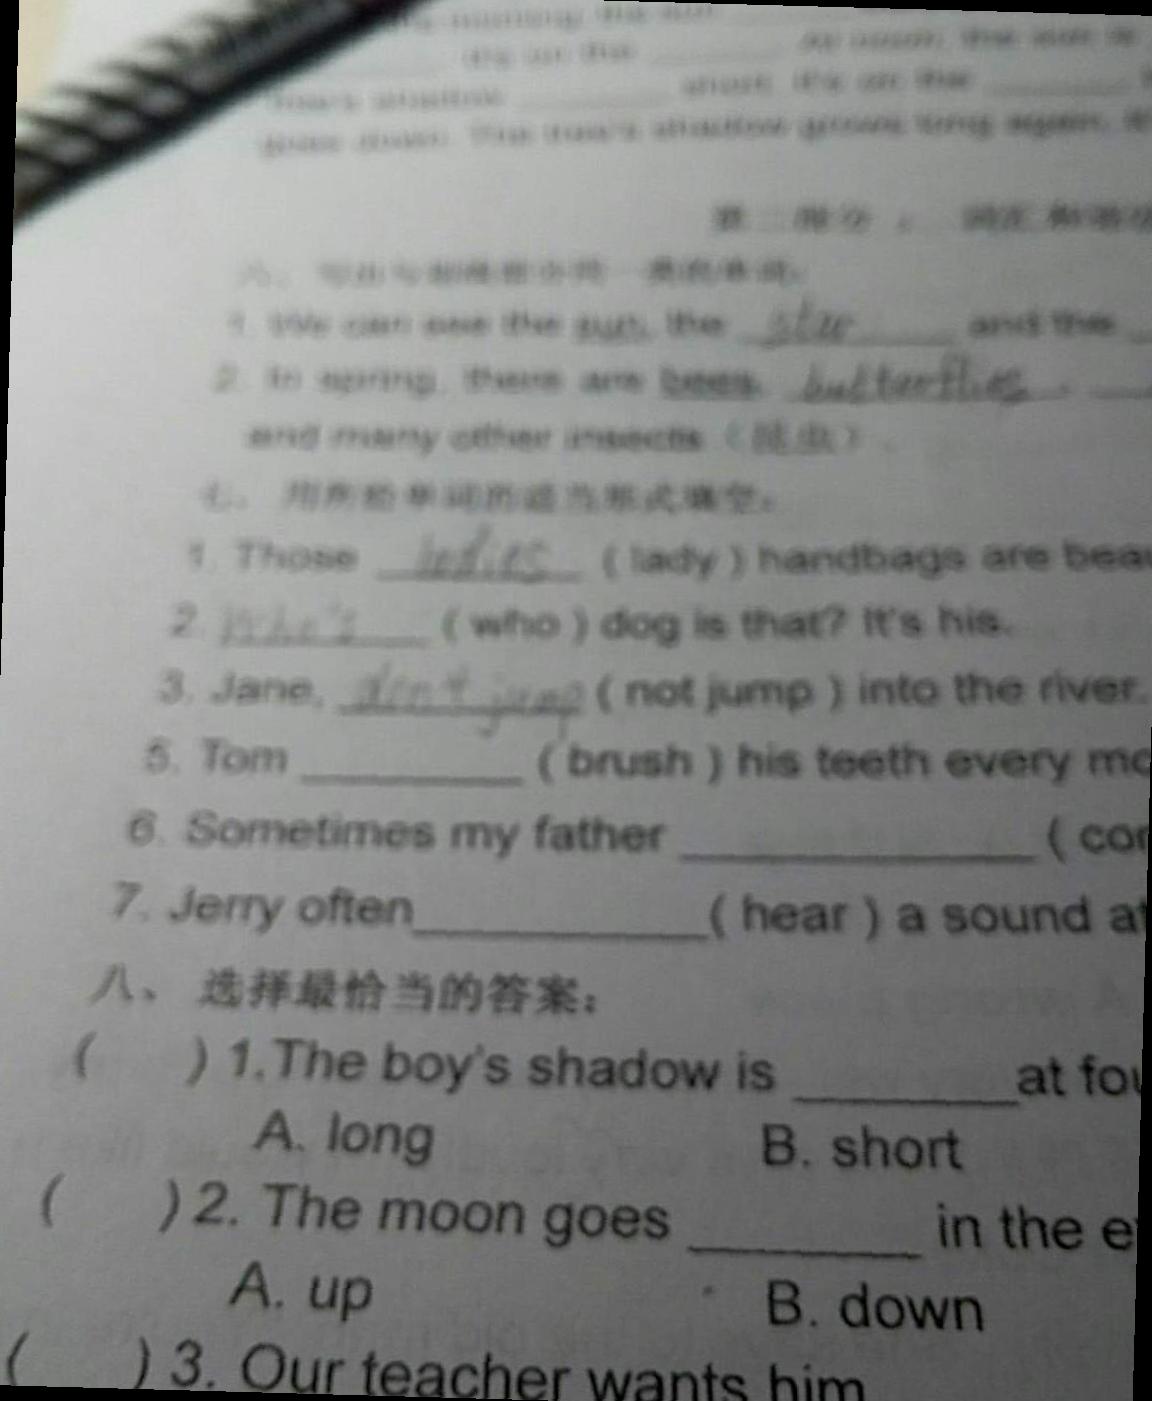 it's on the At noon, the sun is
tree's shadow short. It's on the
goes down. The tree's shadow grows long again.
第二部分：词汇和语法
1. We can see the sun, the star and the
2. In spring, there are bees, butterflies,
and many other insects（昆虫）.
七、用所给单词的适当形式填空：
1. Those ladies ( lady ) handbags are
2. Who's ( who ) dog is that? It's his.
3. Jane, don't jump ( not jump ) into the river.
5. Tom ( brush ) his teeth every
6. Sometimes my father (
7. Jerry often ( hear ) a sound
八、选择最恰当的答案：
( ) 1.The boy's shadow is at
A. long B. short
( ) 2. The moon goes in the
A. up B. down
( ) 3. Our teacher wants him